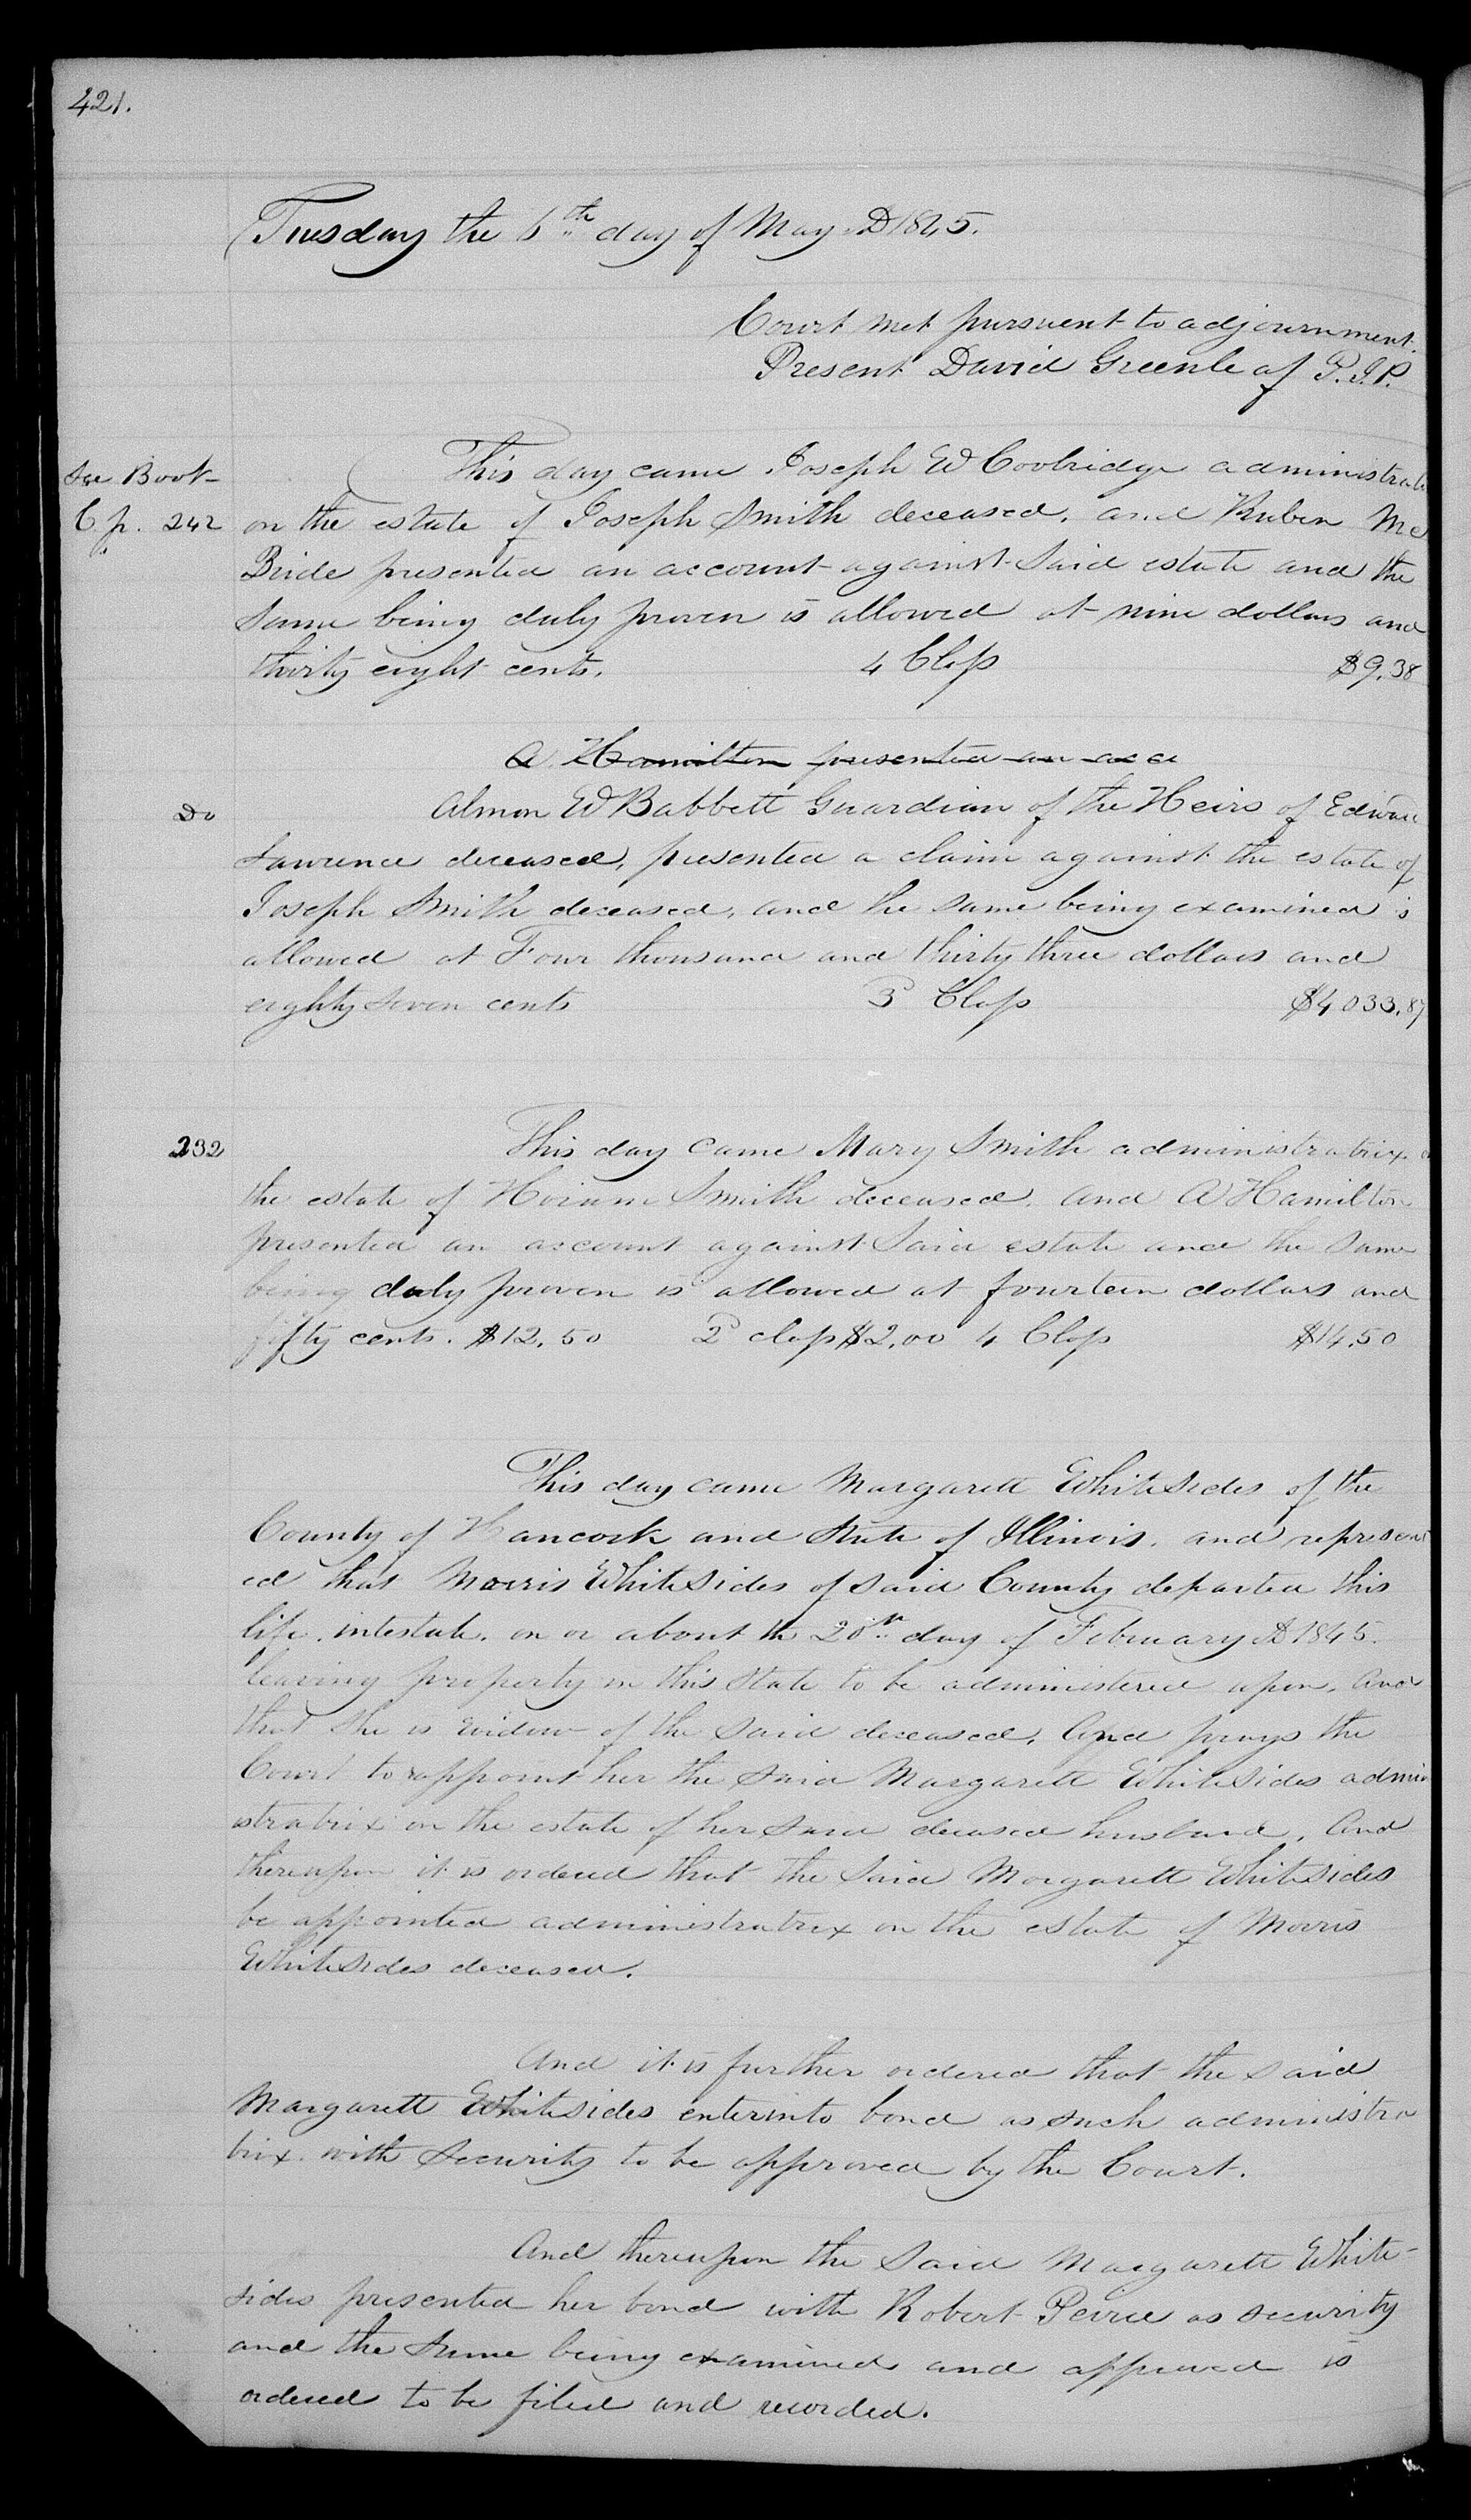 421.
Tuesday the 6th day of May AD 1845.
Court met pursuent to adjournment.
Present David Greenleaf P.J.P.
See Book
C. p. 242
This day came Joseph W Coolridge administrat
on the estate of Joseph Smith deceased, and Ruben Mc
Bride presented an account against Said estate and the
Same being duly proven is allowed at nine dollars and
thirty eight cents. 4 Class $9.38
A Hamilton presented an acc
Do
Almon W Babbett Guardian of the Heirs of Edward
Lawrence deceased, presented a claim against the estate of
Joseph Smith deceased, and the same being examined is
allowed at Four thousand and thirty three dollars and
eighty Seven cents 3d Class $4033.87
232
This day came Mary Smith administratrix
the estate of Hirum Smith deceased, and A Hamilton
presented an account against Said estate and the same
being duly proven is allowed at fourteen dollars and
fifty cents. $12.50 2d class $2.00 4 Class $14.50
This day came Margarett Whitesides of the
County of Hancock and State of Illinois, and represent
ed that Morris Whitesides of said County departed this
life, intestate, on or about the 20th day of February AD 1845.
leaving property in this State to be administered upon, And
that She is widow of the Said deceased, And prays the
Court to appoint her the Said Margarett Whitesides admin
istratrix on the estate of her Said deceased husband, And
thereupon it is ordered that the Said Margarett Whitesides
be appointed administratrix on the estate of Morris
Whitesides deceased.
And it is further ordered that the said
Margarett Whitesides enter into bond as such administra
trix with Security to be approved by the Court.
And thereupon the Said Margarett White-
sides presented her bond with Robert Peirce as security
and the Same being examined and approved is
ordered to be filed and recorded.